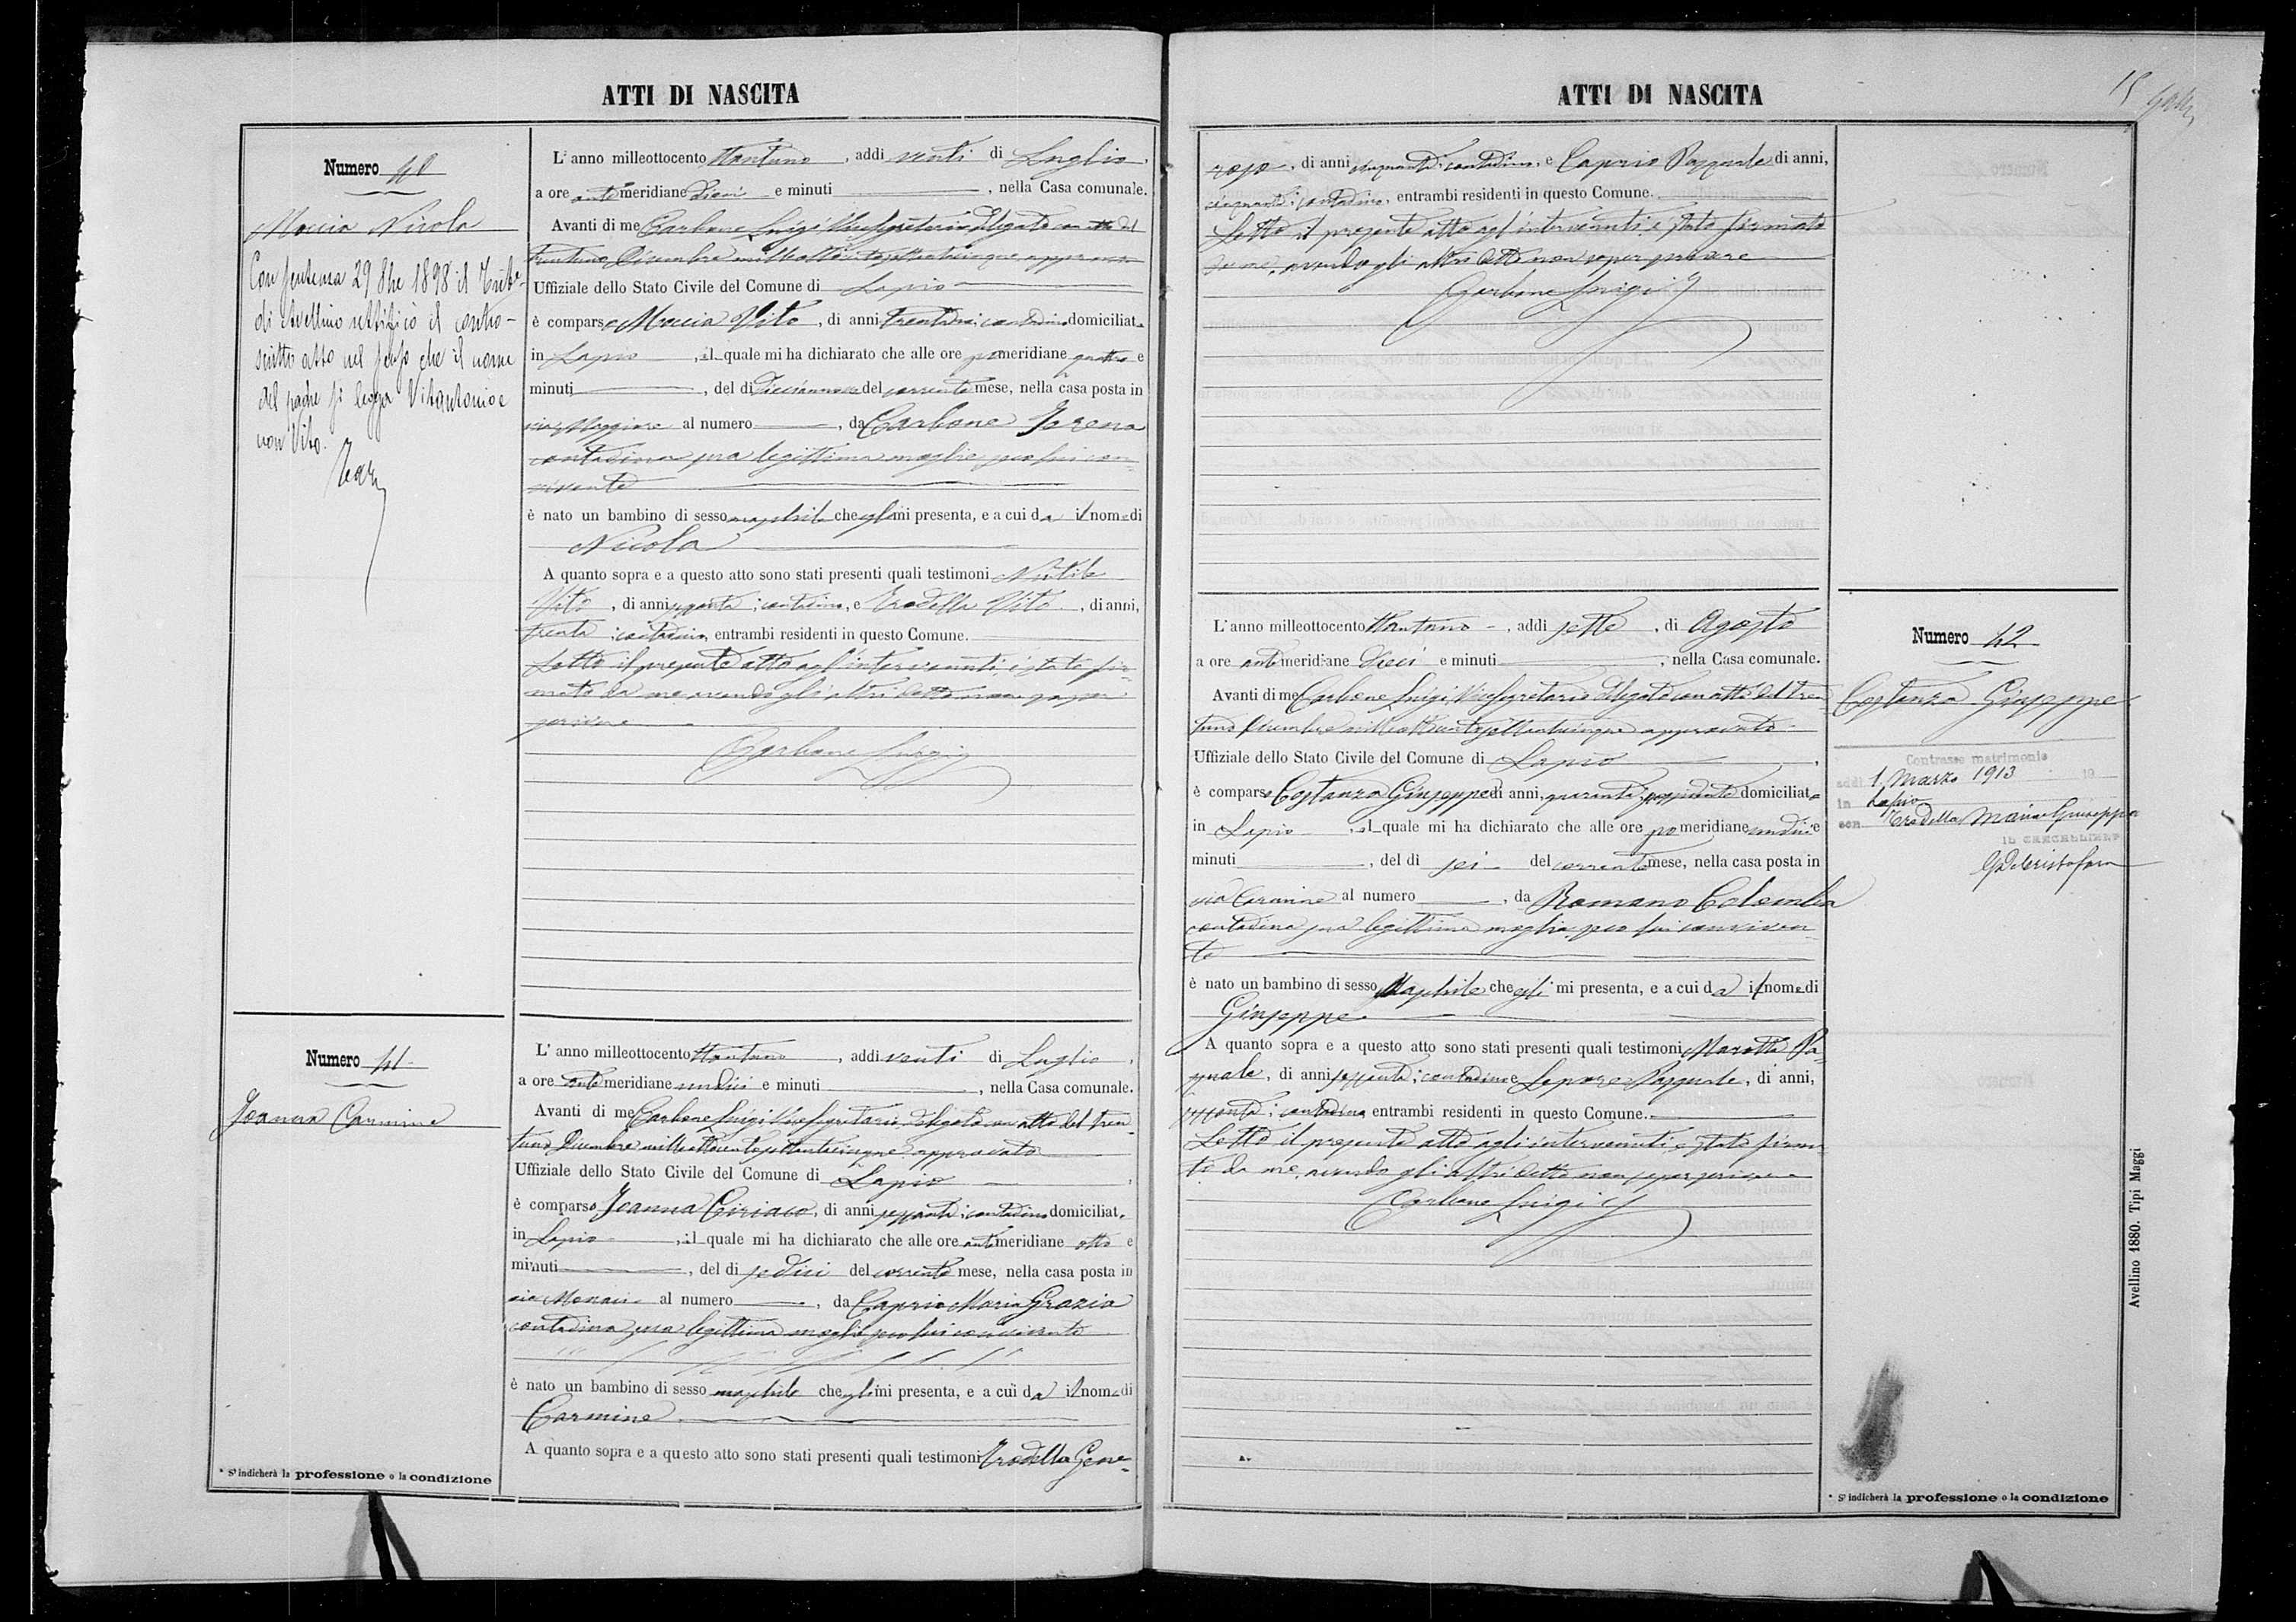 ATTI DI NASCITA
Numero 40
Moccia Nicola
Con sentenza 29 8bre 1898 il Trib.
di Avellino rettificò il contro-
scritto atto nel senso che il nome
del padre si legga Vitantonio e
non Vito.
L'anno milleottocento ottantuno, addì venti di Luglio,
a ore antimeridiane dieci e minuti, nella Casa comunale.
Avanti di me Carbone Luigi Vicesegretario delegato con atto del
trentuno Dicembre milleottocentosettantacinque approvato
Uffiziale dello Stato Civile del Comune di Lapio
è comparso Moccia Vito, di anni contadino domiciliato
in Lapio, il quale mi ha dichiarato che alle ore pomeridiane quattro e
minuti, del dì diciannove del corrente mese, nella casa posta in
via Maggiore al numero, da Carbone
contadina sua legittima moglie seco lui con-
vivente
è nato un bambino di sesso maschile che egli mi presenta, e a cui dà il nome di
Nicola
A quanto sopra e a questo atto sono stati presenti quali testimoni
Vito, di anni sessanta, contadino, e Trodella Vito, di anni,
trenta, contadino, entrambi residenti in questo Comune.
Letto il presente atto agl'intervenuti, è stato fir-
mato da me avendo gli altri detto non saper
scrivere
Carbone Luigi
Numero 41
Jeanna Carmine
L'anno milleottocento ottantuno, addì venti di Luglio,
a ore antimeridiane undici e minuti, nella Casa comunale.
Avanti di me Carbone Luigi Vicesegretario delegato con atto del tren-
tuno Dicembre milleottocentosettantacinque approvato
Uffiziale dello Stato Civile del Comune di Lapio
è comparso Jeanna Ciriaco, di anni sessanta, contadino domiciliato
in Lapio, il quale mi ha dichiarato che alle ore antimeridiane otto e
minuti, del dì sedici del corrente mese, nella casa posta in
via Monaci al numero, da Caprio Maria Grazia
contadina sua legittima moglie seco lui convivente
è nato un bambino di sesso maschile che egli mi presenta, e a cui dà il nome di
Carmine
A quanto sopra e a questo atto sono stati presenti quali testimoni Trodella Gene-
* S'indicherà la professione o la condizione
ATTI DI NASCITA
15
roso, di anni cinquanta, contadino, e Caprio Pasquale di anni,
cinquanta, contadino, entrambi residenti in questo Comune.
Letto il presente atto agl'intervenuti, è stato firmato
da me, avendo gli altri detto non saper scrivere
Carbone Luigi
L'anno milleottocento ottantuno, addì sette, di Agosto
a ore antimeridiane dieci e minuti, nella Casa comunale.
Avanti di me Carbone Luigi, Vicesegretario delegato con atto del tren-
tuno Dicembre milleottocentosettantacinque approvato
Uffiziale dello Stato Civile del Comune di Lapio,
è comparso Costanza Giuseppe di anni, quaranta, possidente domiciliato
in Lapio, il quale mi ha dichiarato che alle ore pomeridiane undici e
minuti, del dì sei del corrente mese, nella casa posta in
via Carmine al numero, da Romano Colomba
contadina sua legittima moglie, seco lui conviven-
te
è nato un bambino di sesso Maschile che egli mi presenta, e a cui dà il nome di
Giuseppe
A quanto sopra e a questo atto sono stati presenti quali testimoni Marotta Pa-
squale, di anni sessanta, contadino e Lepore Pasquale, di anni,
sessanta, contadino entrambi residenti in questo Comune.
Letto il presente atto agli intervenuti è stato firma-
to da me, avendo gli altri detto non saper scrivere
Carbone Luigi
Numero 42
Costanza Giuseppe
Contrasse matrimonio
addì 1 Marzo 1913 19
in Lapio
con Trodella Maria Giuseppa
IL CANCELLIERE
G. De Cristofaro
* S'indicherà la professione o la condizione
Avellino 1880. Tipi Maggi